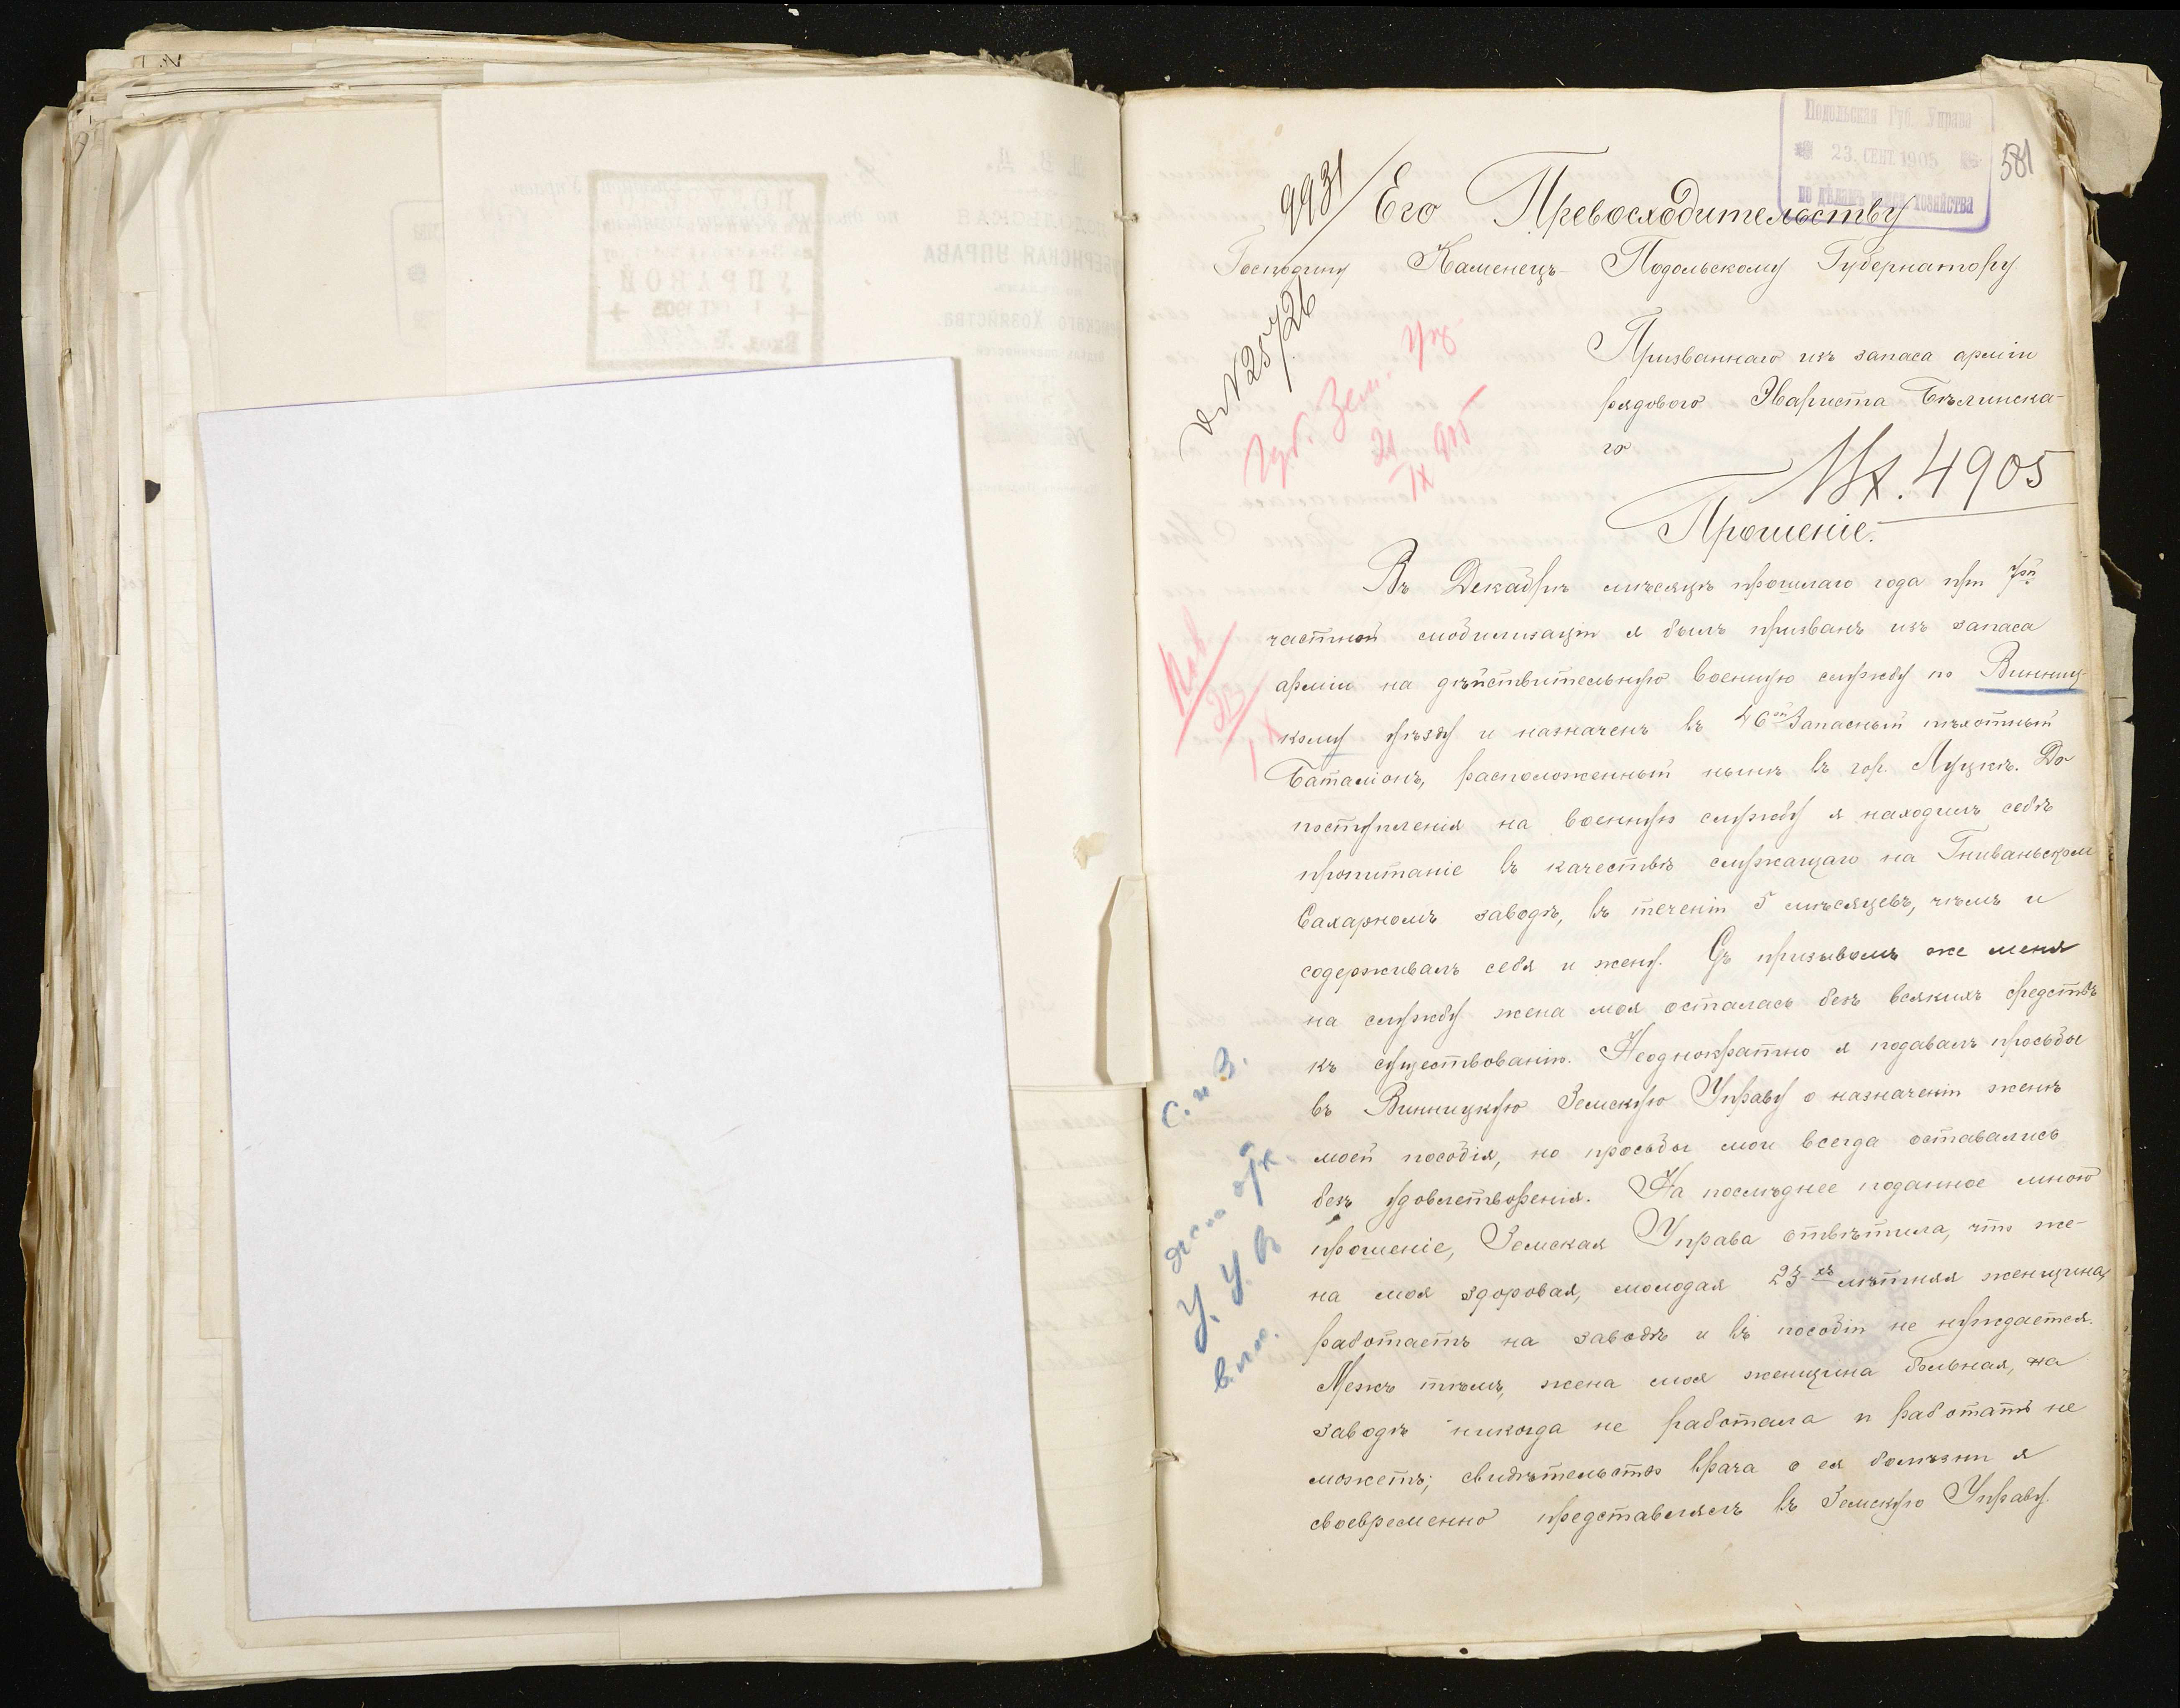 Подольская Губ. Управа
23. СЕНТ. 1905
по дѣламъ земск. хозяйства
581
9931
Его Превосходительству
Господину Каменецъ-Подольскому Губернатору
25726
Губ. Зем. Упр
21/IX 905
Призваннаго изъ запаса арміи
рядового Эвариста Бѣлинска-
го
4905
Прошеніе.
Въ Декабрѣ мѣсяцѣ прошлаго года при 7ой
частной мобилизаціи я былъ призванъ изъ запаса
арміи на дѣйствительную военную службу по Винниц-
кому уѣзду и назначенъ въ 46ой Запасный пѣхотный
Баталіонъ, расположенный нынѣ въ гор. Луцкѣ. До
поступленія на военную службу я находилъ себѣ
пропитаніе въ качествѣ служащаго на Гниваньском
Сахарномъ заводѣ, въ теченіи 5 мѣсяцевъ, чѣмъ и
содерживалъ себя и жену. Съ призывомъ же меня
на службу жена моя осталась безъ всякихъ средствъ
къ существованію. Неоднократно я подавалъ просьбы
въ Винницкую Земскую Управу о назначеніи женѣ
моей пособія, но просьбы мои всегда оставались
безъ удовлетворенія. На послѣднее поданное мною
прошеніе, Земская Управа отвѣтила, что же-
на моя здоровая, молодая 23-хъ лѣтняя женщина,
работаетъ на заводѣ и въ пособіи не нуждается.
Межъ тѣмъ, жена моя женщина больная, на
заводѣ никогда не работала и работать не
можетъ; свидѣтельство врача о ея болѣзни я
своевременно представлялъ въ Земскую Управу.
С. и З.
У. У. В